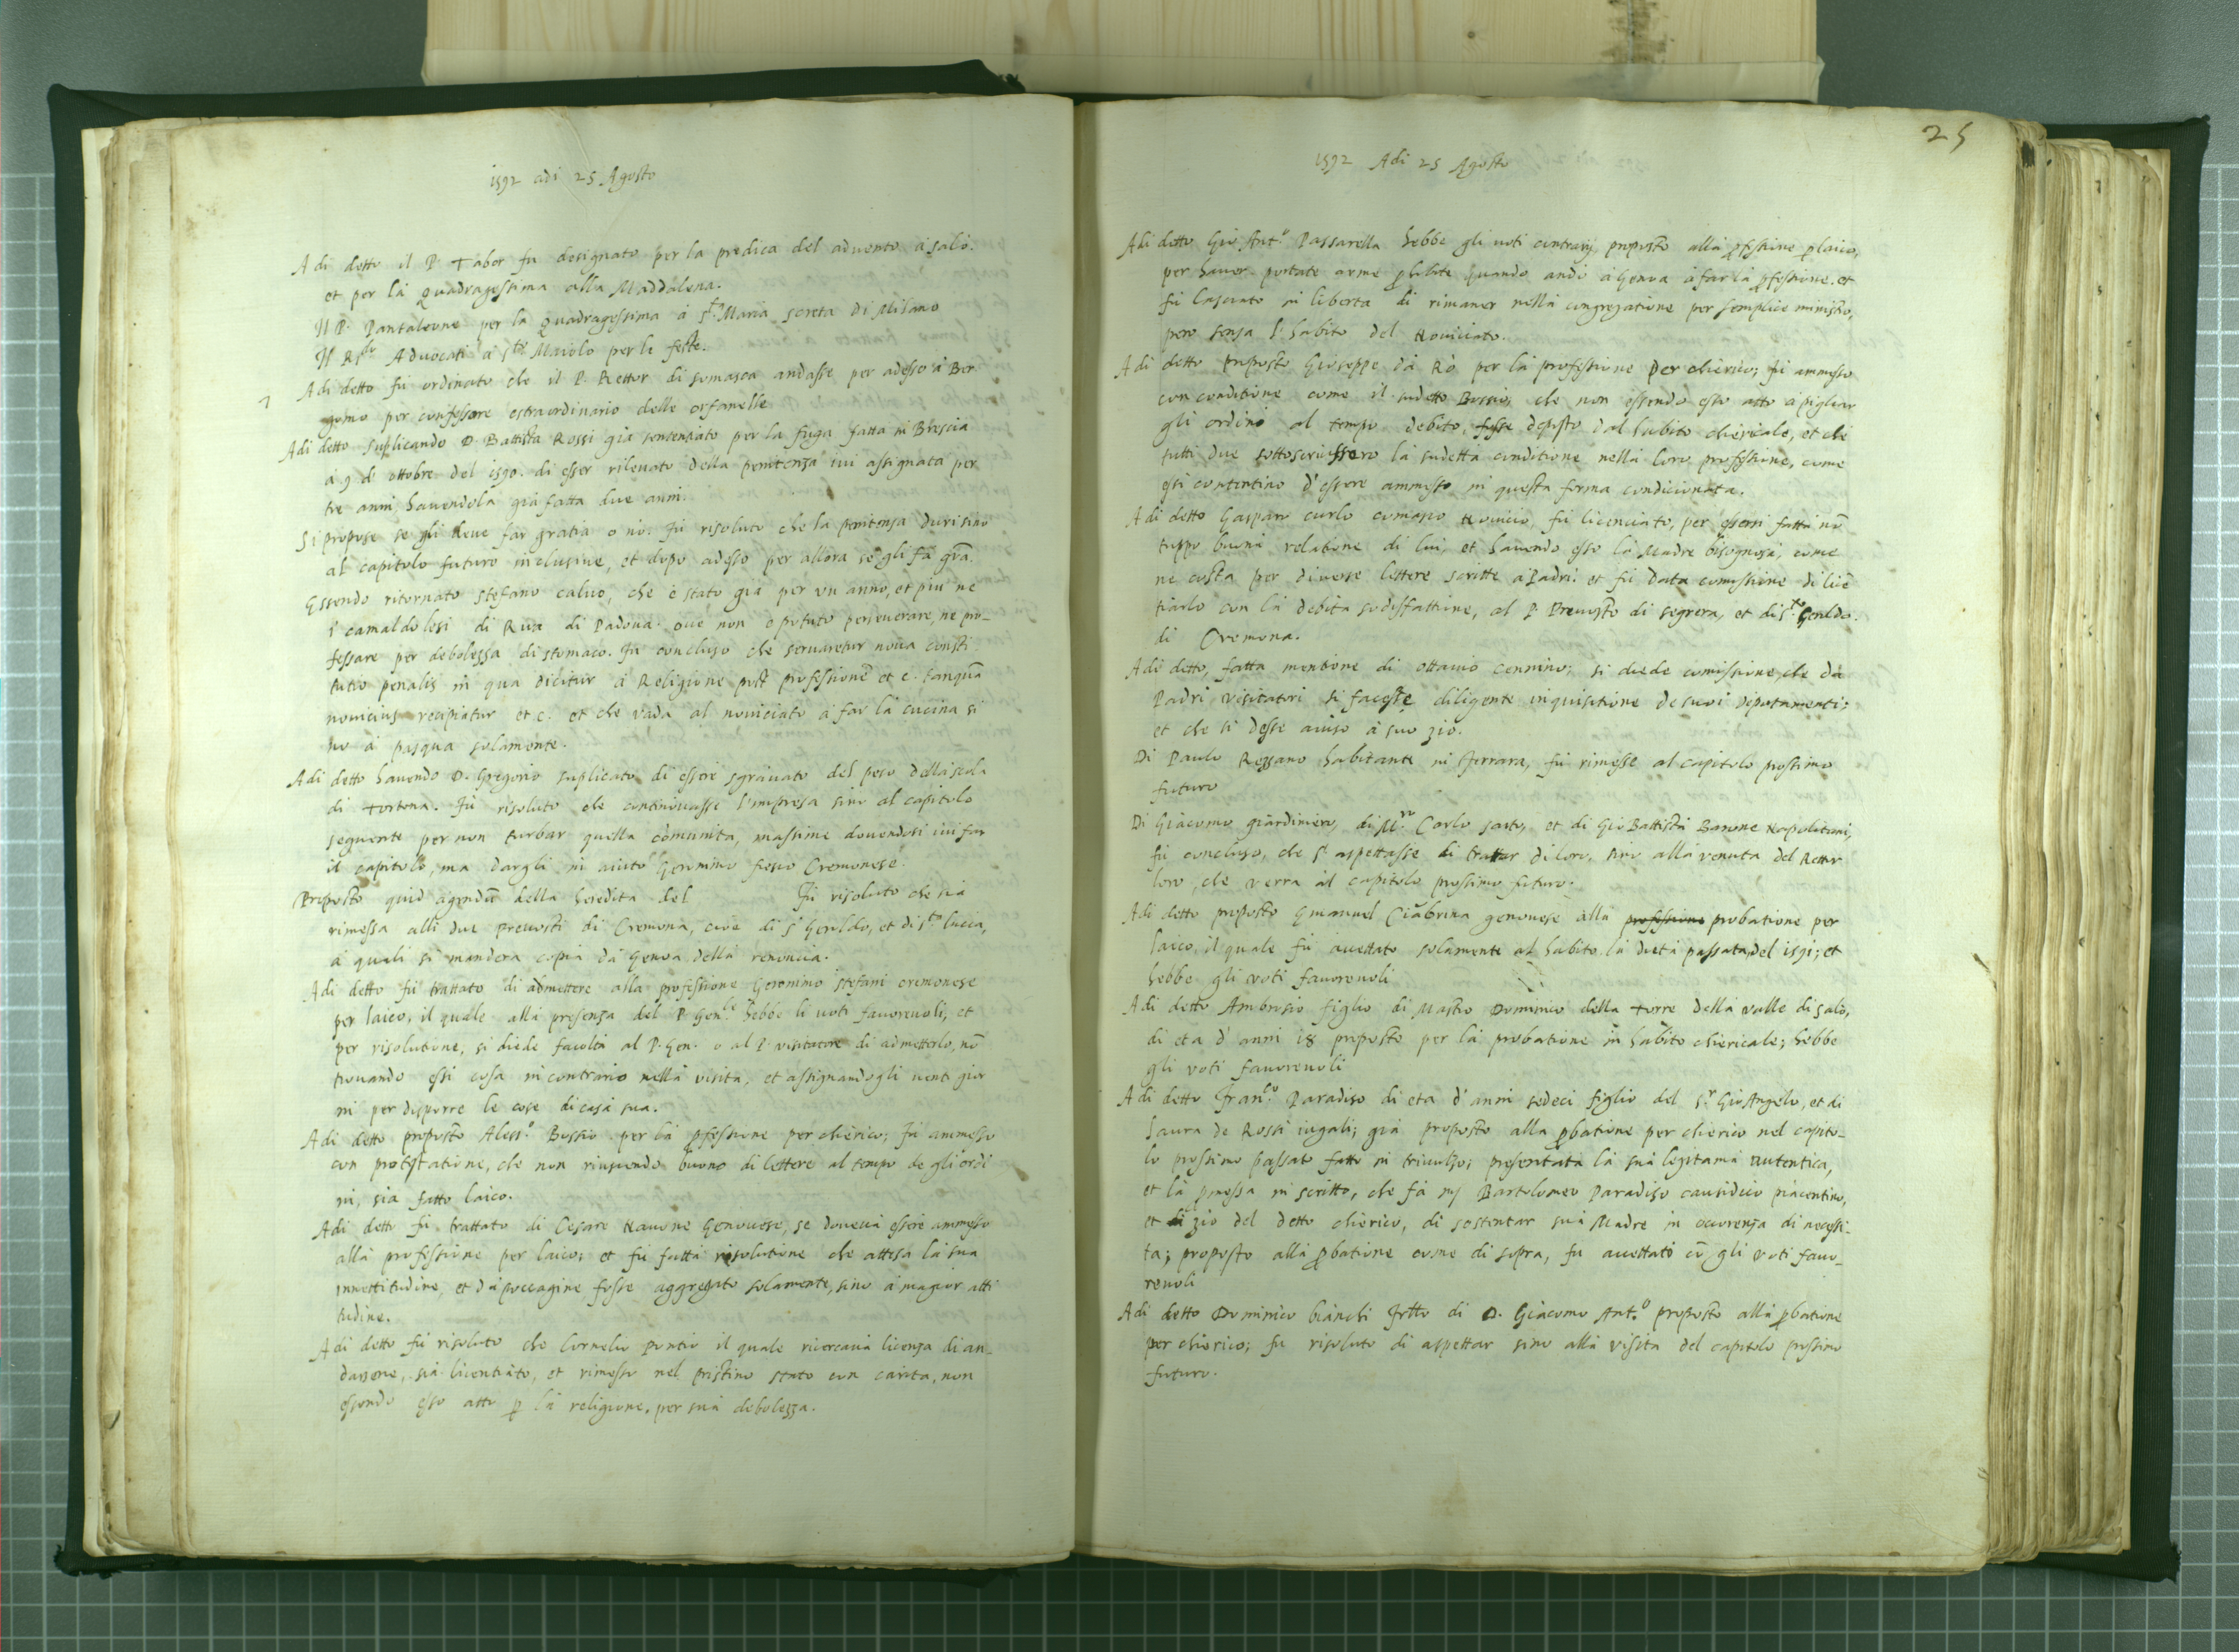 1592 adi 25 Agosto
A di detto il P. Tabor fu designato per la predica del advento à salò.
et per la quadragessima alla Maddalena.
Il P. Pantaleone per la quadragessima à s.ta Maria screta di Milano
Il R.do Advocati à s.to Maiolo per le feste.
A di detto fù ordinato che il P. Rettor di somasca andasse per adesso à Ber
gomo per confessore estraordinario delle orfanelle
Adi detto suplicando D. Battista Rossi già sentenziato per la fuga fatta in Brescia
à 9 d' ottobre del 1590. di esser rilevato della penitenza ivi assignata per
tre anni havendola già fatta due anni.
Si propose se gli deve far gratia o nò. Fù risoluto che la penitenza duri sino
al capitolo futuro inclusive, et dopo adesso per allora se gli fà grã.
Essendo ritornato stefano calvo, che è stato già per un anno, et più ne
i camaldolesi di Rua di Padova. ove non è potuto perseverare, ne pro-
fessare per debolezza di stomaco. Fù concluso che servaretur nova consti
tutio penalis in qua dicitur à Religione post professionẽ et c. tanquã
novicius recipiatur et c. et che vada al noviciato à far la cucina si
no à pasqua solamente.
Adi detto havendo D. Gregorio suplicato di essere sgravato del peso della scola
di tortona. Fù risoluto che continovasse l'impresa sino al capitolo
seguente per non turbar quella comunita, massime dovendosi ivi far
il capitolo, ma dargli in aiuto Geronimo fieno Cremonese.
Proposto quid agendũ della heredita del Fù risoluto che sia
rimessa alli due prevosti di Cremona, cioè di s. Gerildo, et di s.to lucca,
à quali si mandera copia da Genoa della renoncia.
Adi detto fù trattato di admettere alla professione Geronimo stefani cremonese
per laico, il quale alla presenza del P. Gen.le hebbe li voti favorevoli, et
per risolutione, si diede facoltà al P. Gen. o al P. visitatore di admetterlo, nõ
trovando essi cosa in contrario nella visita, et assignandogli venti gior
ni per disporre le cose di casa sua.
Adi detto proposto Aless.o Bossio per la pfessione per chierico; Fù ammesso
con protestatione, che non riuscendo buono di lettere al tempo de gli ordi
ni, sia fatto laico.
Adi detto fù trattato di Cesare Navone Genovese, se doveva essere ammesso
alla professione per laico; et fù fatta risolutione che attesa la sua
innettitudine, et dapoccagine fosse aggregato solamente, sino à magior atti
tudine.
Adi detto fù risoluto che Cornelio Pontio il quale ricercava licenza di an-
darsene, sia licentiato, et rimesso nel pristino stato con carita, non
essendo esso atto p la religione, per sua debolezza.
25
1592 Adi 25 Agosto
Adi detto Gio Ant.o Passarella hebbe gli voti contrarij proposto alla pfessione p laico,
per haver portate arme phibite quando andò à Genoa à far la pfessione. et
fù lasciato in liberta di rimaner nella congregatione per semplice ministro,
però senza l'habito del Noviciato.
Adi detto proposto Gioseppe da Rò per la professione per chierico; fù ammesso
con conditione come il sudetto Bossio, che non essendo esso atto à pigliar
gli ordini al tempo debito, fosse deposto dal habito chiericale, et che
tutti due sottoscrivessero la sudetta conditione nella loro professione, come
essi contentino d'essere ammesso in questa forma condicionata.
Adi detto Gasparo curlo comasco Novicio, fù licenciato, per essersi fatta nõ
troppo buona relatione di lui, et havendo esso la Madre bisognosa, come
ne costa per diverse lettere scritte à Padri. et fù data comissione di licẽ
tiarlo con la debita sodisfattione, al P. Prevosto di segrera, et di s.to Gerildo.
di Cremona.
Adi detto, fatta mentione di ottavio cennino; si diede comissione, che da
Padri visitatori si facesse diligente inquisitione de suoi diportamenti;
et che si desse aviso à suo zio.
Di Paulo Rezzano habitante in Ferrara, fù rimesse al capitolo prossimo
futuro
Di Giacomo giardiniero, di M.ro Carlo sarto, et di Gio Battista Barone Napolitani,
fù concluso, che s' aspettasse di trattar di loro, sino alla venuta del Rettor
loro, che verra al capitolo prossimo futuro.
Adi detto proposto Emanuel Ciabrina genovese alla professione probatione per
laico, il quale fù accettato solamente al habito la dieta passata del 1591; et
hebbe gli voti favorevoli
Adi detto Ambrosio figlio di Mastro Dominico della torre della valle di salò,
di eta d' anni 18 proposto per la probatione in habito chiericale; hebbe
gli voti favorevoli
Adi detto Fran.co Paradiso di eta d'anni sedeci figlio del s.r Gio Angelo, et di
laura de Rossi iugali; già proposto alla pbatione per chierico nel capito-
lo prossimo passato fatto in trivulzo; presentata la sua legitama autentica,
et la pmessa in scritto, che fa mj Bartolomeo Paradiso causidico piacentino,
et di zio del detto chierico, di sostentar sua Madre in occorenza di necessi-
ta; proposto alla pbatione come di sopra, fu accettato cõ gli voti favo-
revoli
Adi detto Dominico bianchi frẽllo di D. Giacomo Ant.o proposto alla pbatione
per chierico; fu risoluto di aspettar sino alla visita del capitolo prossimo
futuro.